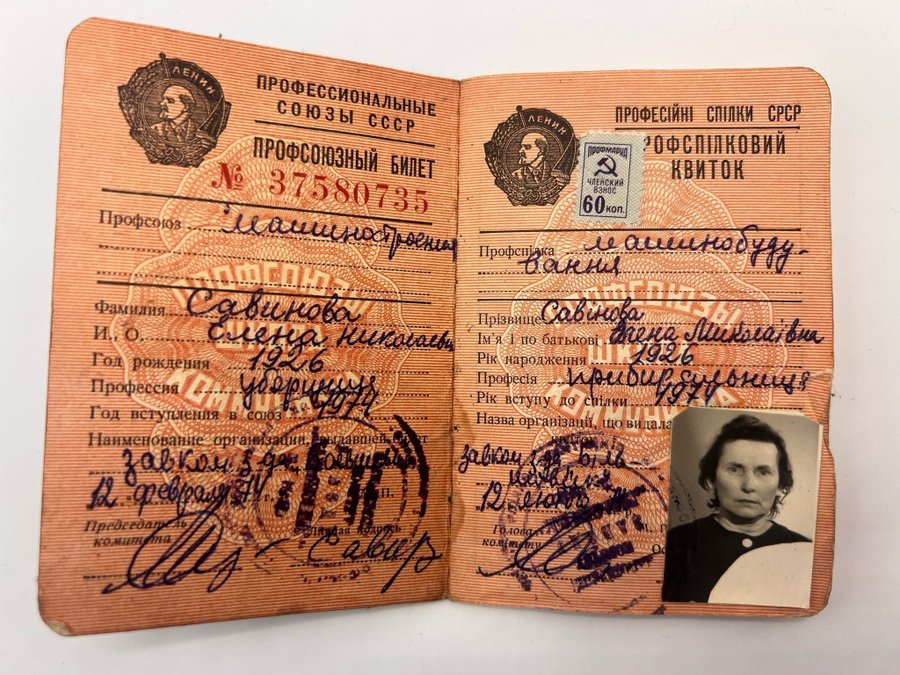 ЛЕНИН
ПРОФЕССИОНАЛЬНЫЕ
СОЮЗЫ СССР
ПРОФСОЮЗНЫЙ БИЛЕТ
№ 37580735
Профсоюз Машиностроения
Фамилия Савинова
И., О. Елена Николаевн
Год рождения 1926
Профессия уборщица
Год вступления в союз 1974
Наименование организации, выдавшей билет
завком з-да Большевик
12 февраля 74
М.П.
Председатель
комитета
Личная подпись
ЛЕНИН
ПРОФЕСІЙНІ СПІЛКИ СРСР
ПРОФСПІЛКОВИЙ
КВИТОК
ЧЛЕНСКИЙ
ВЗНОС
60 КОП.
Профспілка машинобуду-
вання
Прізвище Савінова
Ім'я і по батькові Олена Миколаївна
Рік народження 1926
Професія прибиральниця
Рік вступу до спілки 1974
Назва організації, що видала
квиток
завком з-ду Біль-
12
М.
Голова
комітету
Ос